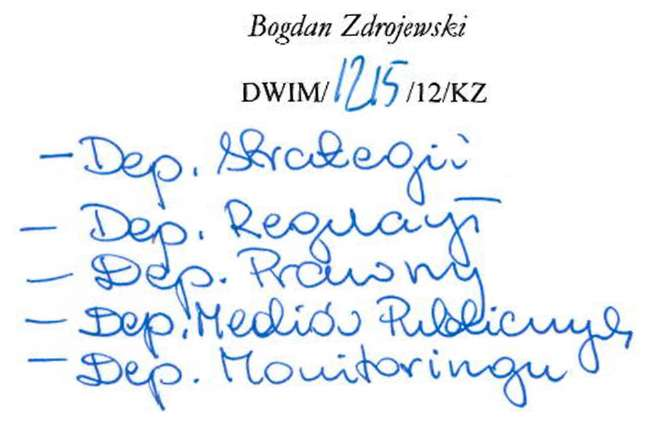 Bogdan Zdrojewski
DWIM/1215/12/KZ
- Dep. Strategii
- Dep. Regulacji
- Dep. Prawny
- Dep. Mediów Publicznych
- Dep. Monitoringu